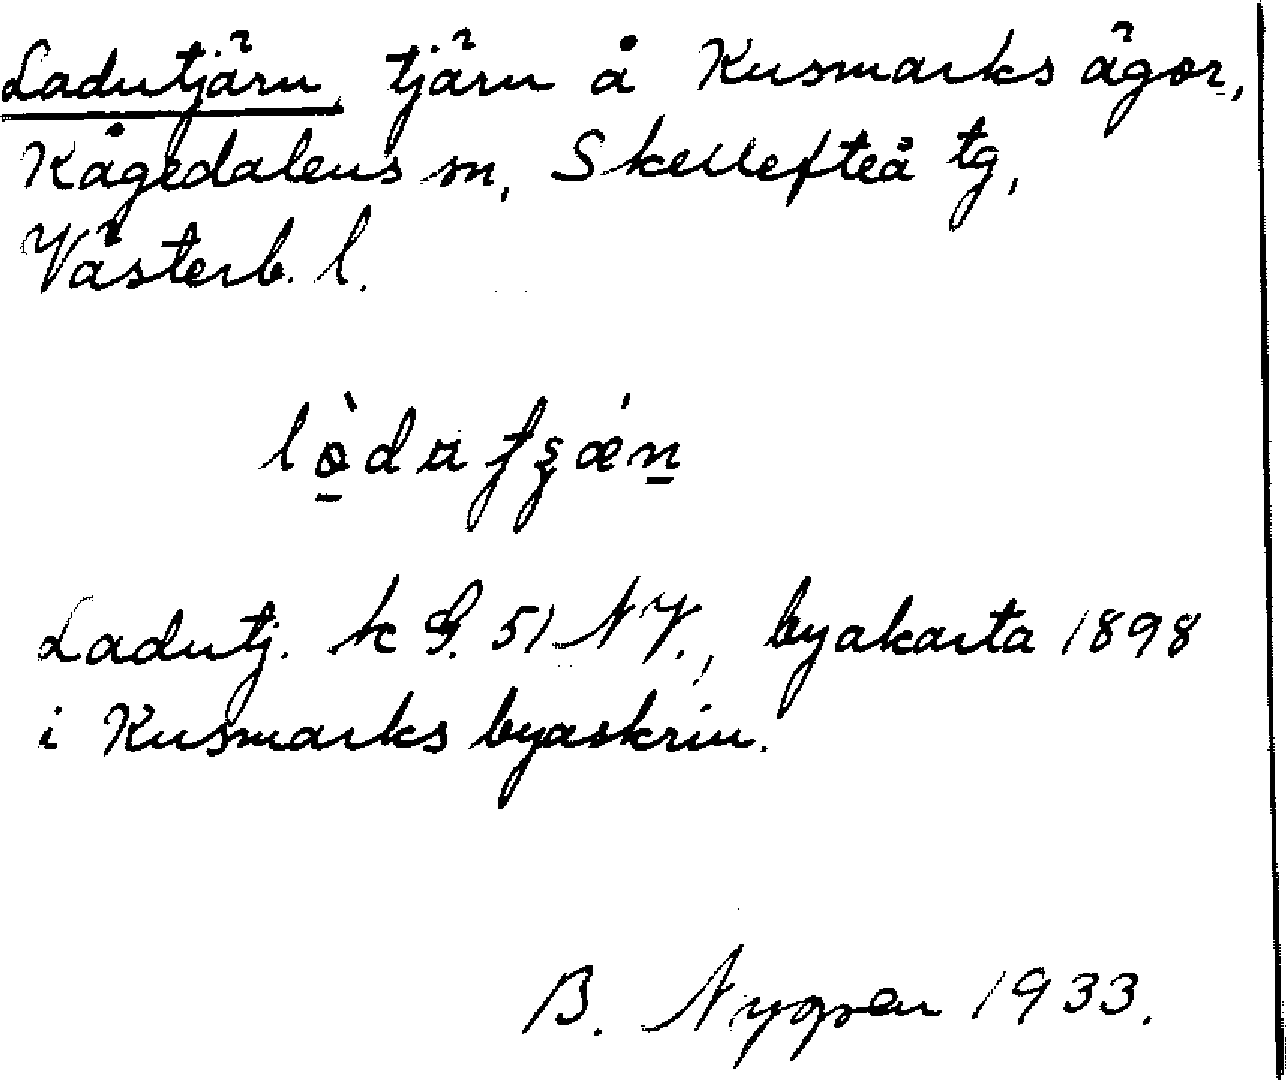 Ladutjärn, tjärn å Kusmarks ägor,
Kågedalens sn, Skellefteå tg,
Västerb. l.
Ladutj. k G. 51 NV., byakarta 1898
i Kusmarks byaskrin.
B. Nygren 1933.